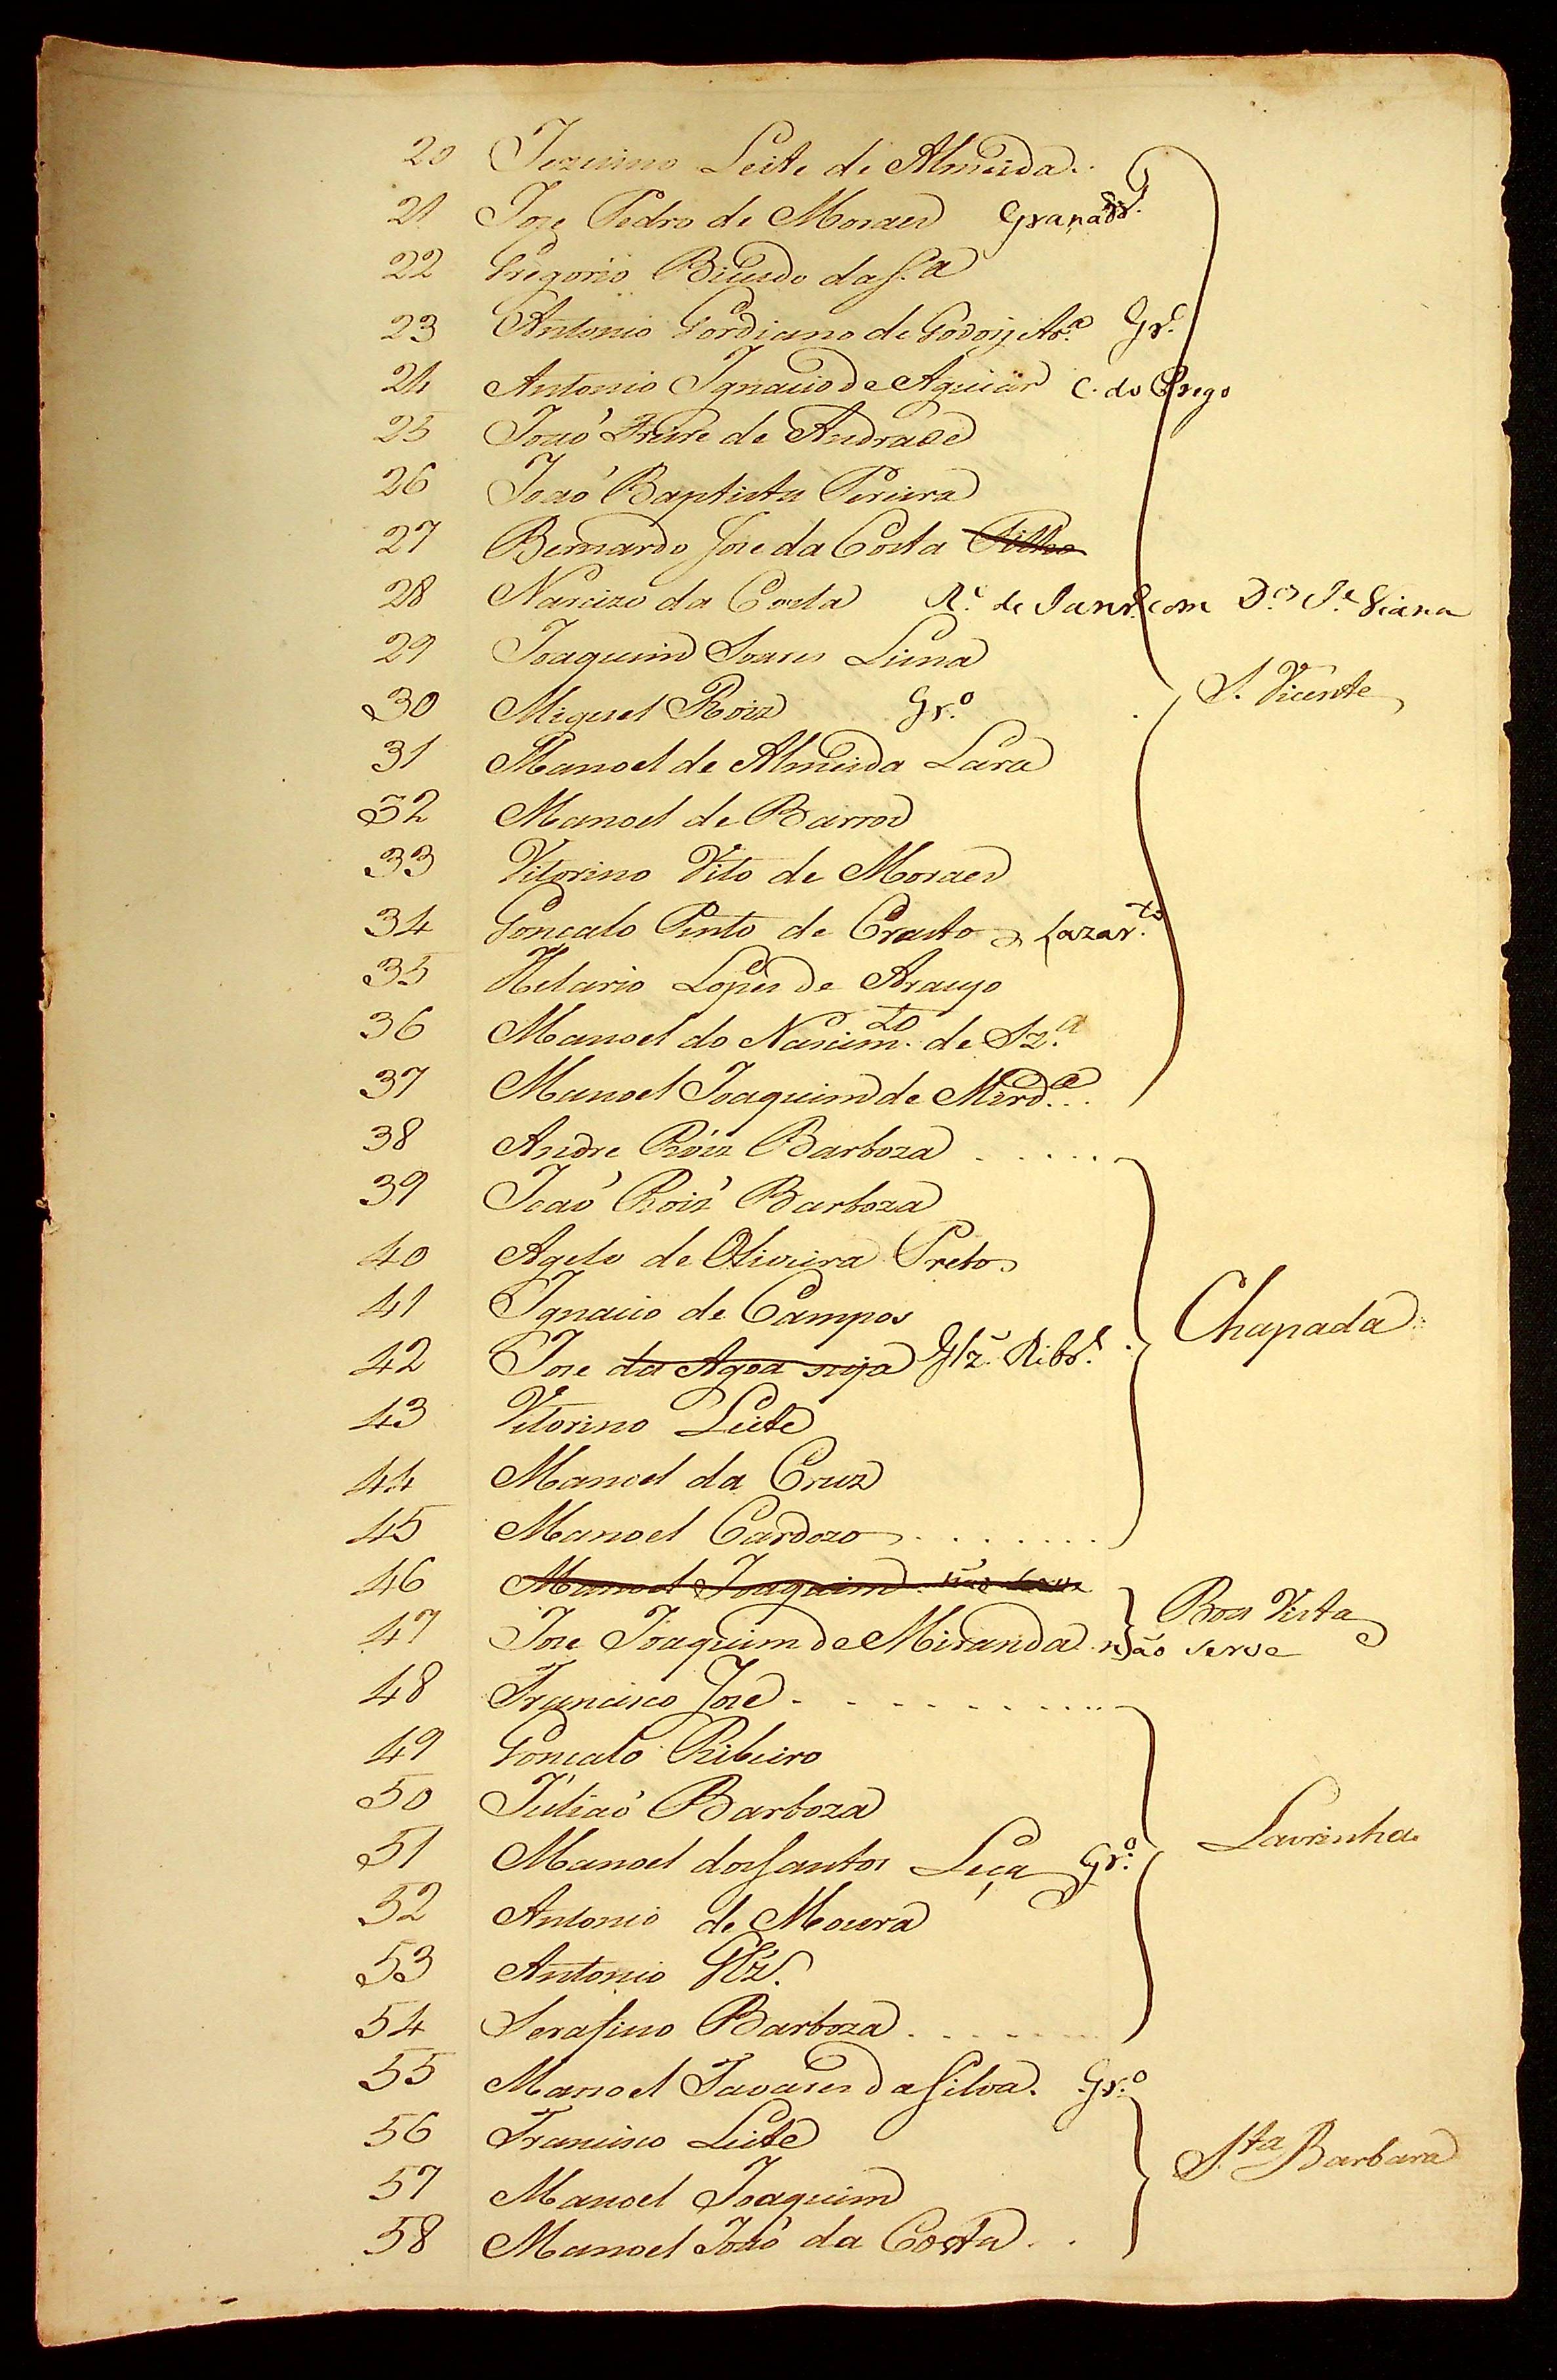 20 Jezuino Leite de Almeida.
21 Joze Pedro de Moraes Granadr.º
22 Gregorio Bicudo da S.ª
23 Antonio Gordiano de Godoij Ar.º Gr.º
24 Antonio Ignacio de Aguiar C. do Prego
25 Joaó Freire de Andrade
26 Joaó Baptista Pereira
27 Bernardo Joze da Costa Filho
28 Narcizo da Costa R.º de Janr.º com D.os J.e Viana
29 Joaquim Soares Lima
S. Vicente
30 Miguel Roiz Gr.º
31 Manoel de Almeida Lara
32 Manoel de Barros
33 Vitorino Vito de Moraes
34 Goncalo Pinto de Crasto Lazar.to
35 Helario Lopes de Araujo
36 Manoel do Nascim.to de Sz.ª
37 Manoel Joaquim de Mird.ª
38 Andre Roiz Barboza
39 Joaó Roiz Barboza
40 Agelo de Oliveira Preto
41 Ignacio de Campos
Chapada
42 Joze da Agoa suja Glz. Ribr.º
43 Vitorino Leite
44 Manoel da Cruz
45 Manoel Cardozo
46 Manoel Joaquim não serve
Boa Vista
47 Joze Joaquim de Miranda não serve
48 Francisco Joze
49 Goncalo Ribeiro
50 Juliaó Barboza
Lavrinha
51 Manoel dos Santos Leça Gr.º
52 Antonio de Moura
53 Antonio Glz.
54 Serafino Barboza
55 Manoel Tavares da Silva. Gr.º
56 Francisco Leite
S.ta Barbara
57 Manoel Joaquim
58 Manoel Joaó da Costa